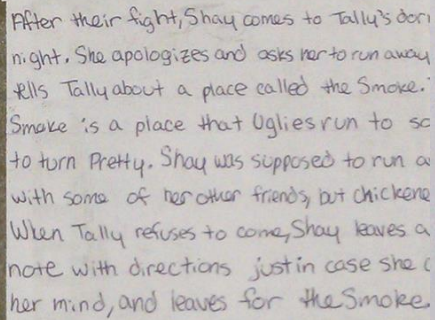 After their fight, Shay comes to Tally's
night. She apologizes and asks her to run away
tells Tally about a place called the Smoke.
Smoke is a place that Uglies run to so
to turn Pretty. Shay was supposed to run a
with some of her other friends, but chickene
When Tally refuses to come, Shay leaves a
note with directions just in case she c
her mind, and leaves for the Smoke.